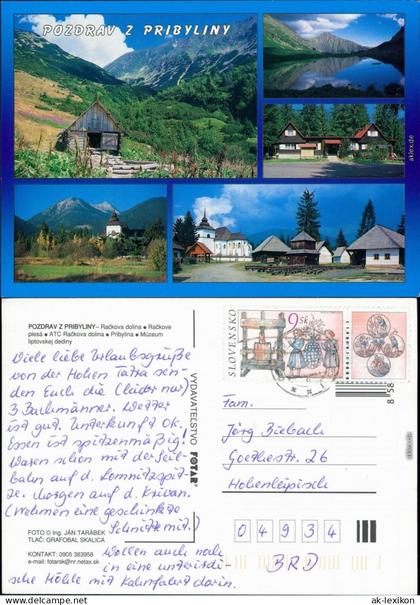 POZDRAV Z PRIBYLINY
POZDRAV Z PRIBYLINY – Račkova dolina • Račkove
plesá • ATC Račkova dolina • Pribylina • Múzeum
liptovskej dediny
Viele liebe Urlaubsgrüße
von der Hohen Tatra sen-
den Euch die (leider nur)
3 Bachmänner. Wetter
ist gut. Unterkunft OK.
Essen ist spitzenmäßig!
Waren schon mit der Seil-
bahn auf d. Lomnitzspit-
ze. Morgen auf d. Krivan.
(Nehmen eine geschenkte
Schnitte mit.)
Wollen auch noch
in eine unterirdi-
sche Höhle mit Kahnfahrt darin.
FOTO © Ing. JÁN TARÁBEK
TLAČ: GRAFOBAL SKALICA
KONTAKT: 0905 383958
e-mail: fotarsk@nr.netax.sk
VYDAVATEĽSTVO FOTAR
SLOVENSKO
9 sk
8 58
Fam.
Jörg Biebach
Goethestr. 26
Hohenleipisch
04934
BRD
aklex.de
ak-lexikon.de
© ak-lexikon